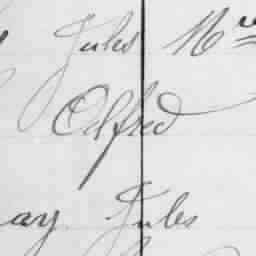 Jules Mre
Alfred
ay Jules